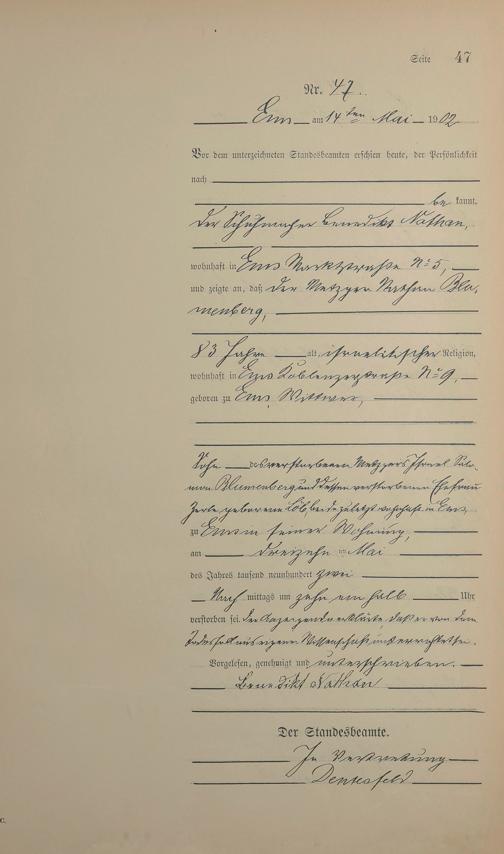 Seite 47
Nr. 47.
Ems am 14ten Mai 1902
Vor dem unterzeichneten Standesbeamten erschien heute, der Persönlichkeit
nach
be kannt,
der Schuhmacher Benedikt Nathan,
wohnhaft in Ems Marktstraße No 5,
und zeigte an, daß der Metzger Nathan Blu-
menberg,
83 Jahre alt, israelitischer Religion,
wohnhaft in Ems Koblenzerstraße No 9,
geboren zu Ems, Wittwer,
Sohn des verstorbenen Metzgers Israel Salo-
mon Blumenberg und dessen verstorbenen Ehefrau
geborene Löb, beide zuletzt wohnhaft in Ems,
zu Ems in seiner Wohnung,
am dreizehn ten Mai
des Jahres tausend neunhundert zwei
Nach mittags um zehn ein halb Uhr
verstorben sei. Der Anzeigende erklärte, daß er von dem
Todesfall aus eigener Wissenschaft unterrichtet sei.
Vorgelesen, genehmigt und unterschrieben.
Benedikt Nathan
Der Standesbeamte.
In Vertretung
C.